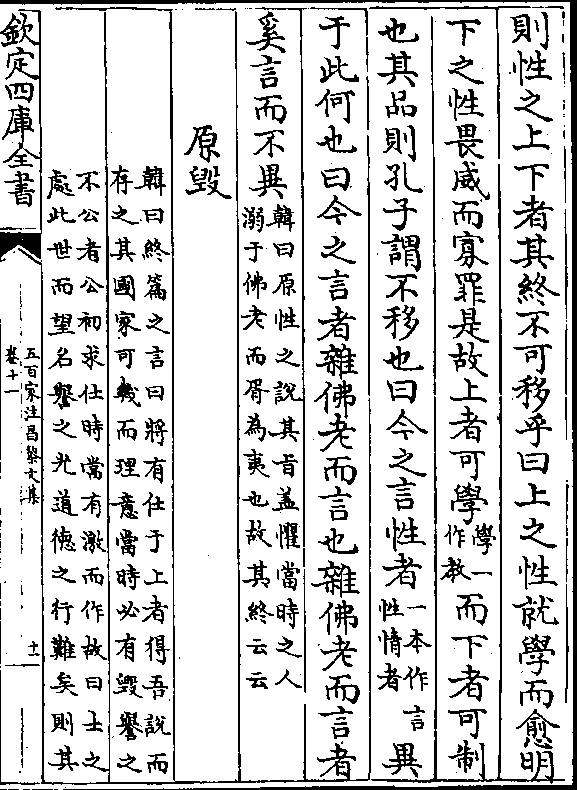 則性之上下者其終不可移乎曰上之性就學而愈明
下之性畏威而寡罪是故上者可學學一作教而下者可制
也其品則孔子謂不移也曰今之言性者一本作言性情者異
于此何也曰今之言者雜佛老而言也雜佛老而言者
奚言而不異韓曰原性之說其旨蓋懼當時之人
溺于佛老而胥為夷也故其終云云
原毀
韓曰終篇之言曰將有仕于上者得吾說而
存之其國家可幾而理意當時必有毀譽之
不公者公初求仕時當有激而作故曰士之
處此世而望名譽之光道德之行難矣則其
欽定四庫全書
五百家注昌黎文集
卷十一
十一